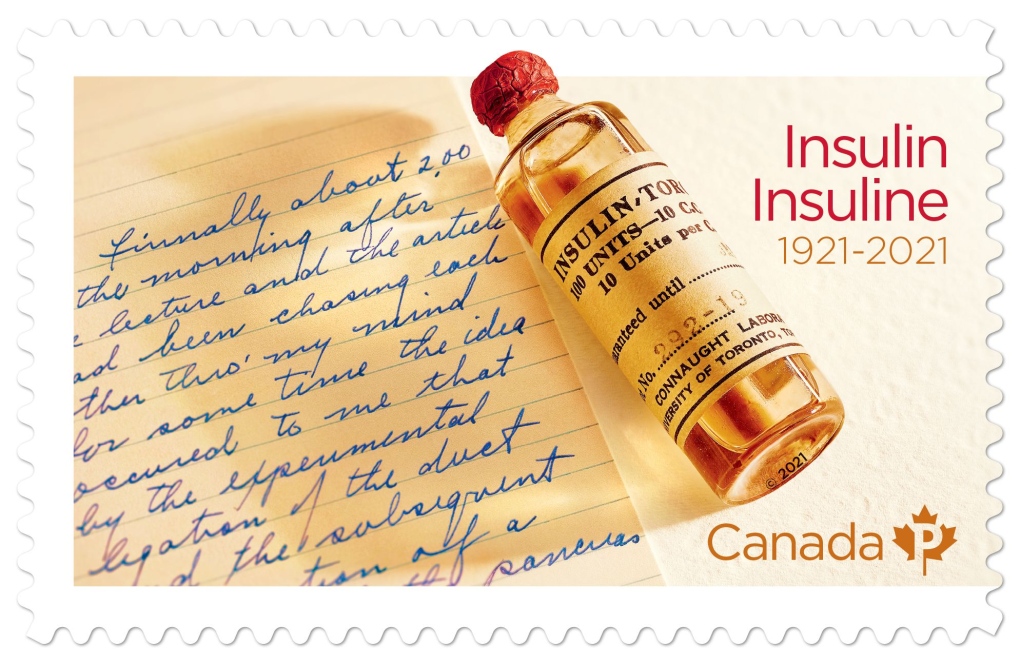 Finnally about 2,00
the morning after
lecture and the article
ad been chasing each
ther thro' my mind
for some time the idea
occured to me that
by the experimental
ligation of the duct
d the subsequent
tion of a
pancreas
INSULIN, TORO
100 UNITS—10 C.C.
10 Units per C.
ranteed until
No. 392-19
CONNAUGHT LABORA
VERSITY OF TORONTO, TO
© 2021
Insulin
Insuline
1921-2021
Canada P